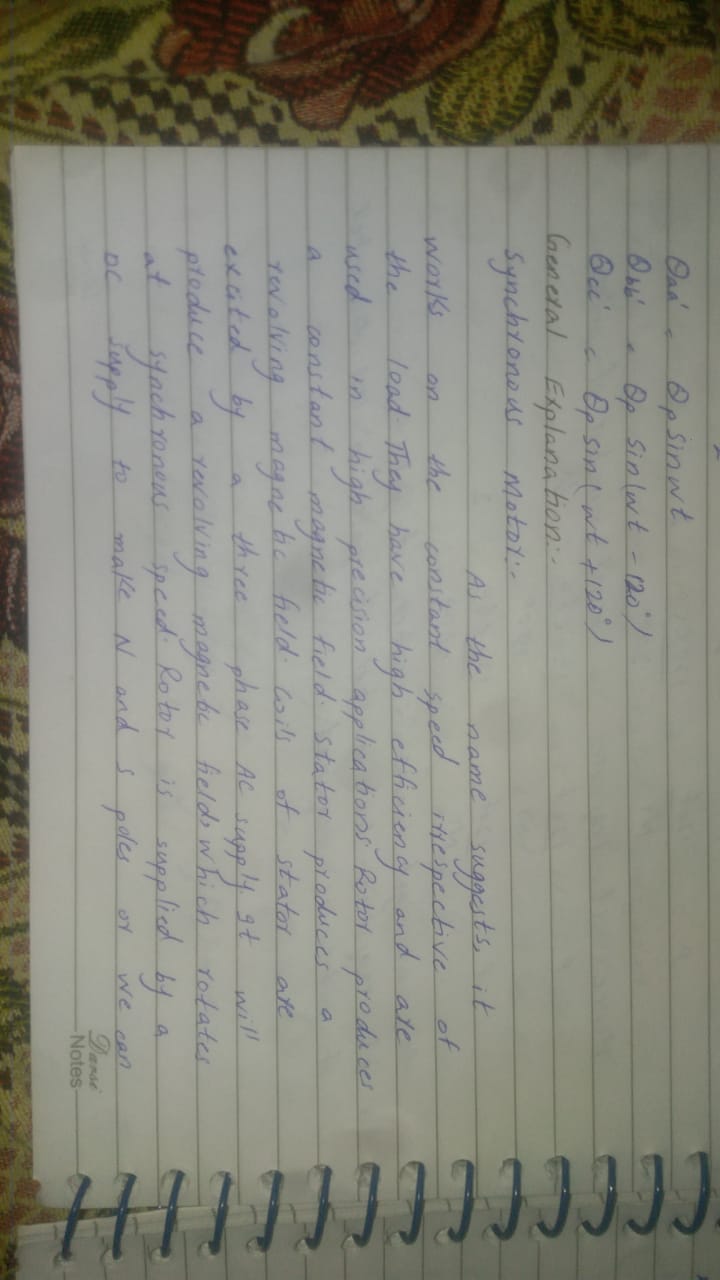 θaa' = θp sin wt
θbb' = θp sin(wt - 120°)
θcc' = θp sin(wt + 120°)
General Explanation:-
Synchronous Motor:-
As the name suggests, it
works on the constant speed irrespective of
the load. They have high efficiency and are
used in high precision applications. Rotor produces
a constant magnetic field. Stator produces a
revolving magnetic field. Coils of stator are
excited by a three phase AC supply. It will
produce a revolving magnetic field which rotates
at synchronous speed. Rotor is supplied by a
DC supply to make N and S poles or we can
Danśi
Notes